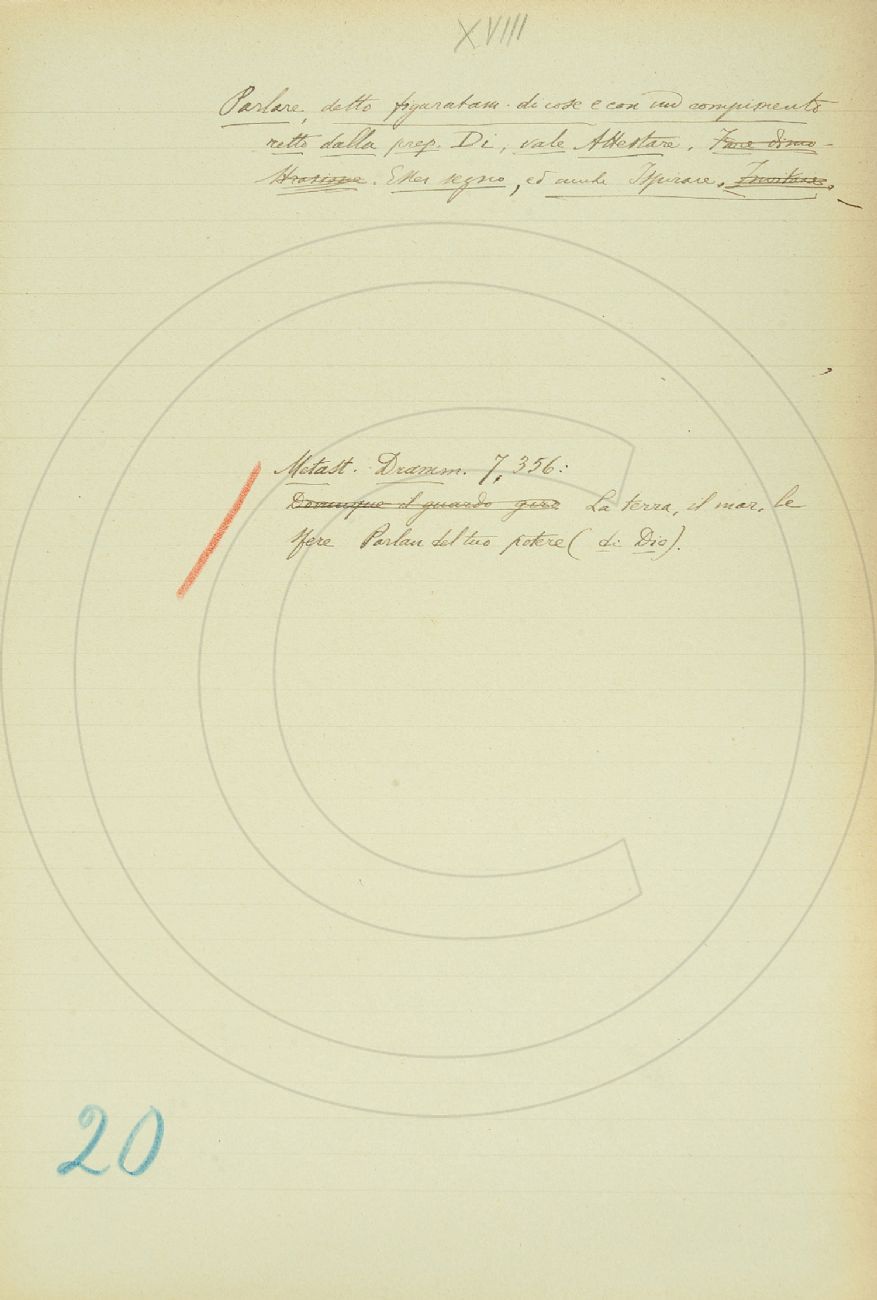 XVIII
Parlare, detto figuratam. di cose e con un compimento
retto dalla prep. Di, vale Attestare, Fare dimo-
strazione. Esser segno, ed anche Ispirare, Invitare.
Metast. Dramm. 7, 356:
Dovunque il guardo giro La terra, il mar, le
sfere Parlan del tuo potere (di Dio).
20